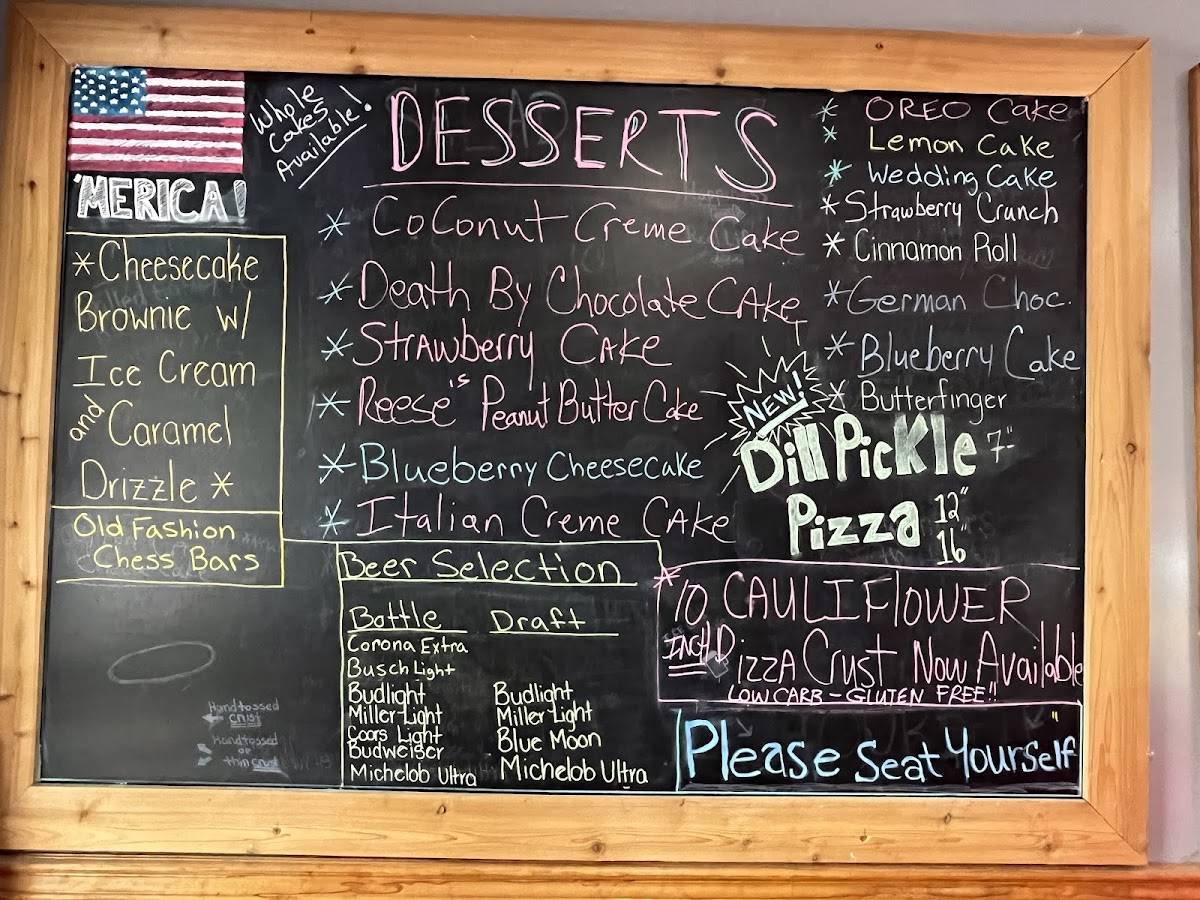 'MERICA!
Whole
Cakes
Available!
DESSERTS
* Cheesecake
Brownie w/
Ice Cream
and Caramel
Drizzle *
Old Fashion
Chess Bars
* Coconut Creme Cake
* Death By Chocolate Cake
* Strawberry Cake
* Reese's Peanut Butter Cake
* Blueberry Cheesecake
* Italian Creme Cake
* OREO Cake
* Lemon Cake
* Wedding Cake
* Strawberry Crunch
* Cinnamon Roll
* German Choc.
* Blueberry Cake
* Butterfinger
NEW!
Dill Pickle 7"
Pizza 12"
16"
Beer Selection
Bottle
Corona Extra
Busch Light
Budlight
Miller Light
Coors Light
Budweiser
Michelob Ultra
Draft
Budlight
Miller Light
Blue Moon
Michelob Ultra
* 10 CAULIFLOWER
INCH Pizza Crust Now Available
LOW CARB - GLUTEN FREE!!
Please Seat Yourself
Handtossed
crust
Handtossed
or
thin crust